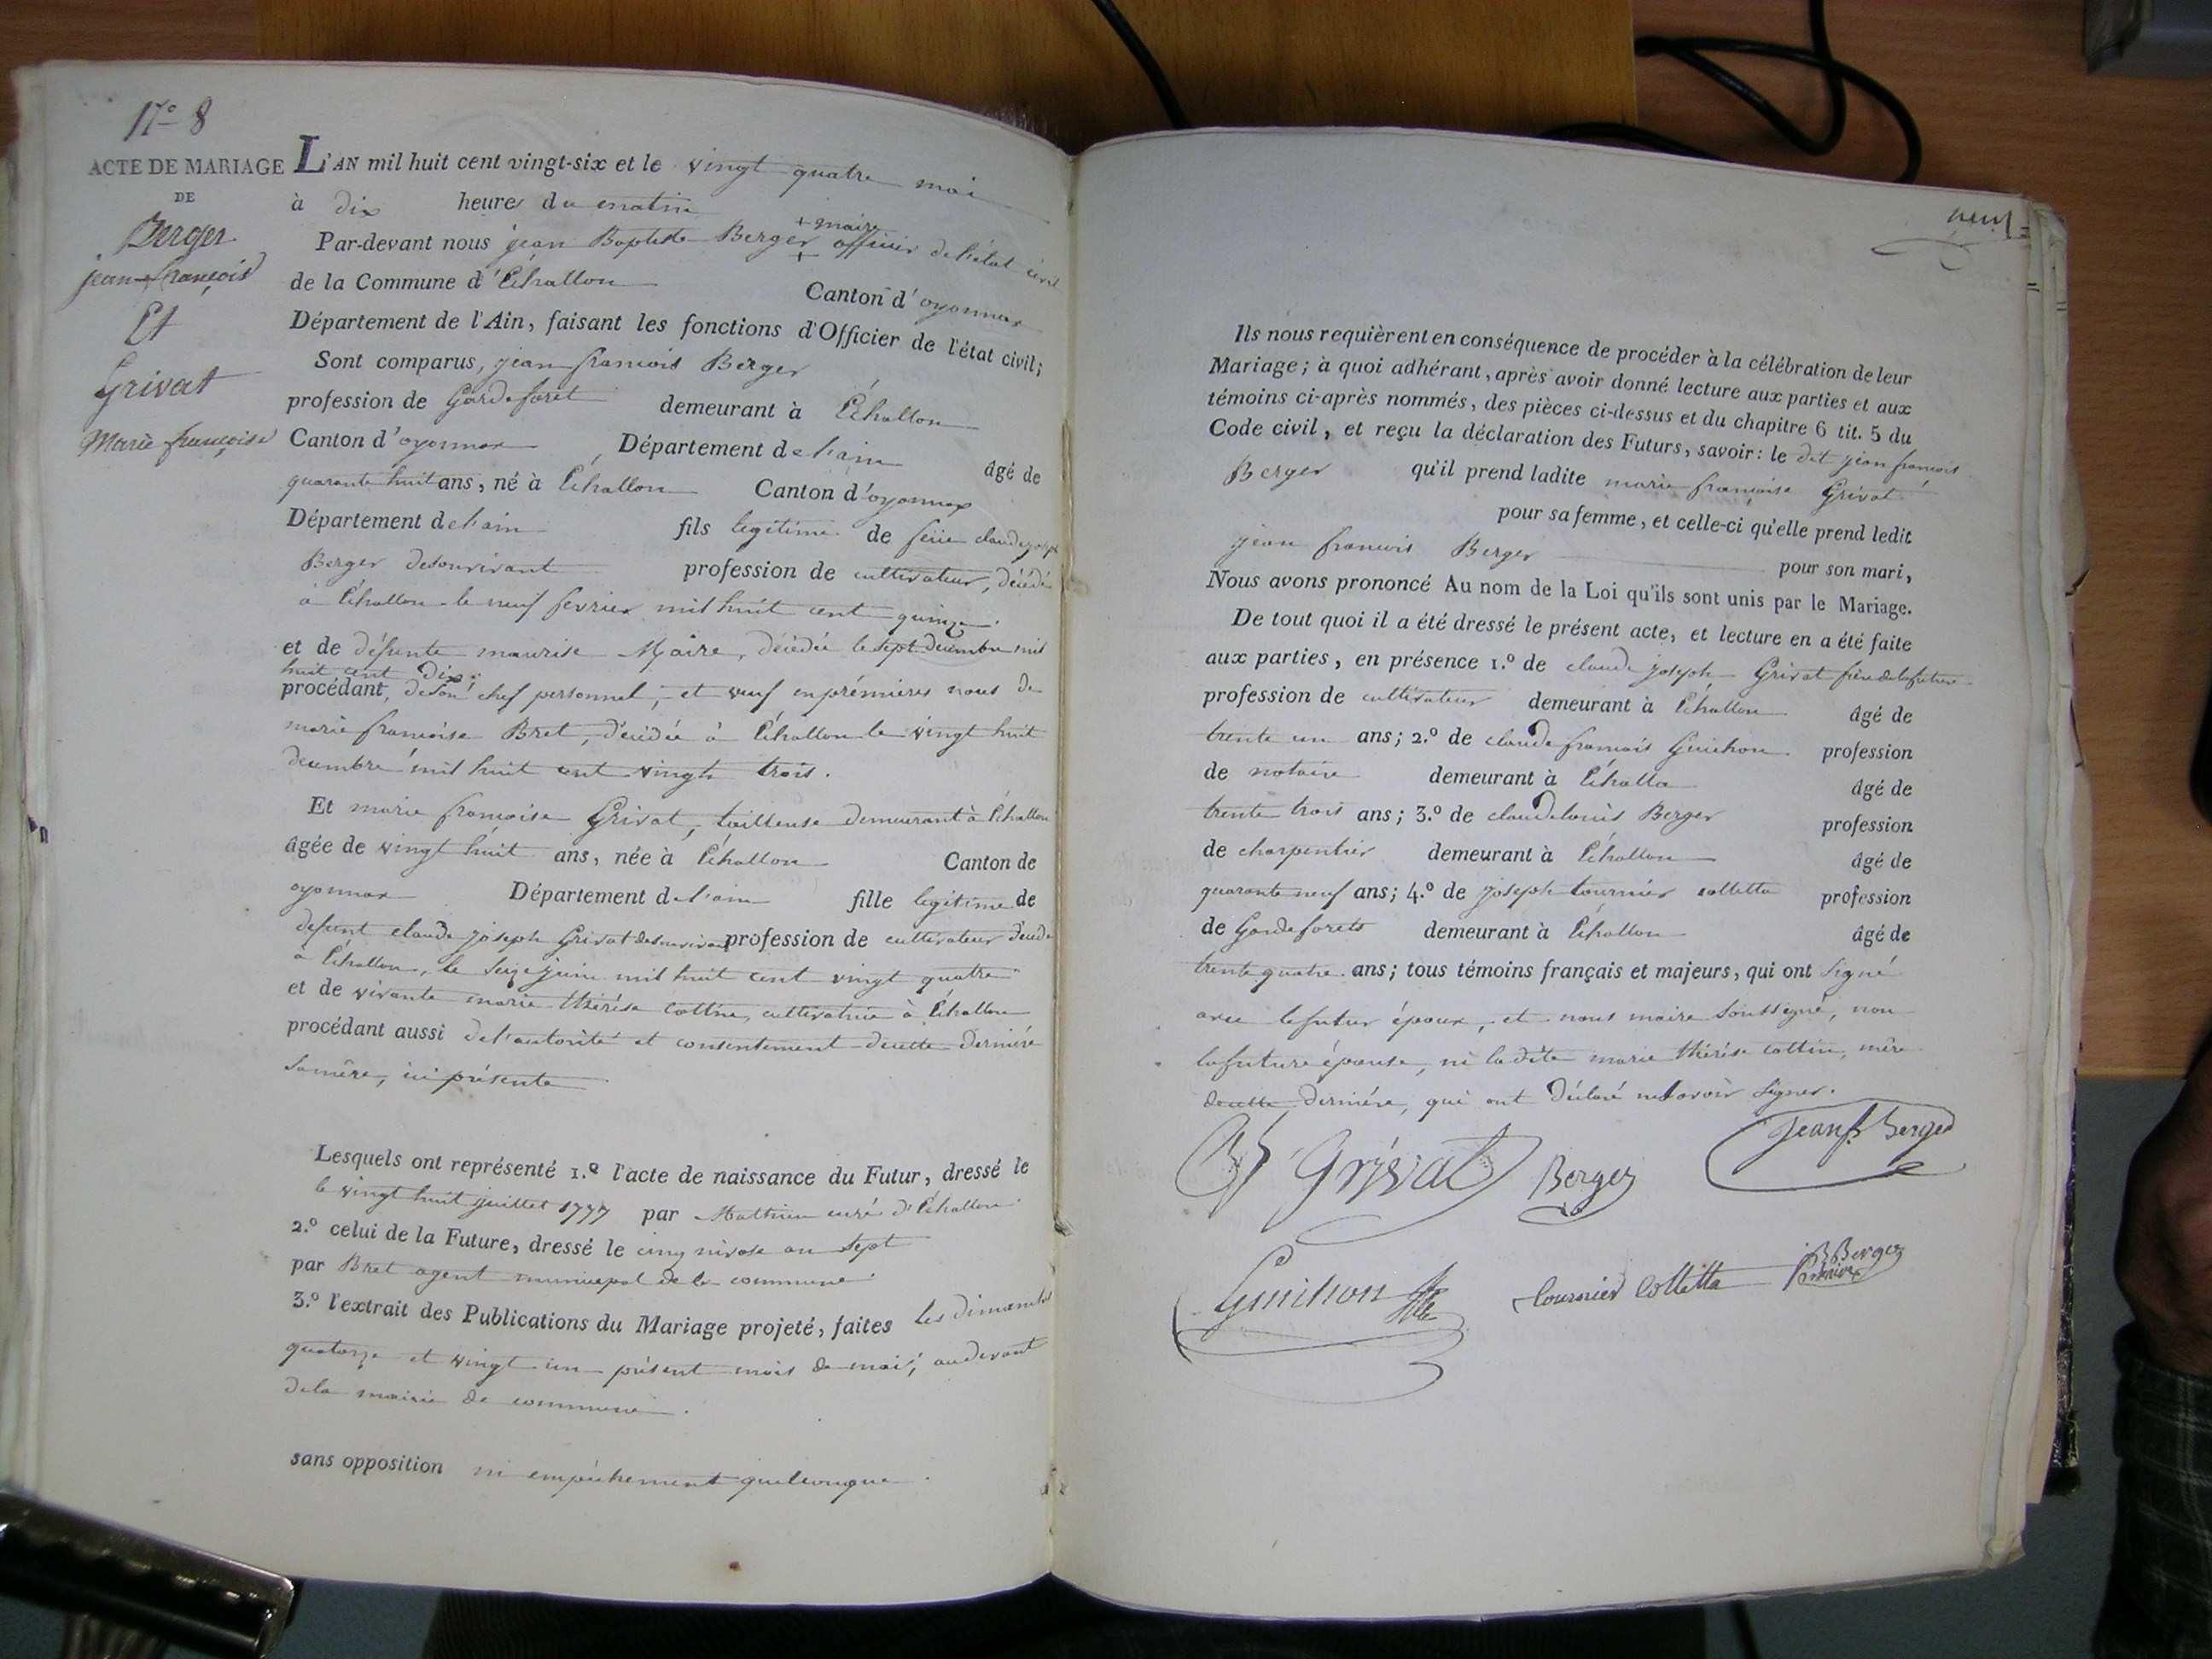 N.º 8
ACTE DE MARIAGE
DE
Berger
jean françois
Et
Grivat
Marie françoise
L'AN mil huit cent vingt-six et le vingt quatre mai
à dix heures du matin
+ maire
Par-devant nous jean Baptiste Berger + officier de l'état civil
de la Commune d'Échallon Canton d'oyonnax
Département de l'Ain, faisant les fonctions d'Officier de l'état civil;
Sont comparus, jean francois Berger
profession de Garde forêt demeurant à Échallon
Canton d'oyonnax, Département de l'ain âgé de
quarante huit ans, né à Échallon Canton d'oyonnax
Département de l'ain fils legitime de feu claude joseph
Berger desonvivant profession de cultivateur, décédé
à Échallon le neuf fevrier mil huit cent quinze.
et de défunte maurise Maire, décédée le sept decembre mil
huit cent dix.
procédant, de son chef personnel, et veuf en prémières noces de
marie francoise Bret, décédée à Échallon le vingt huit
decembre mil huit cent vingt trois.
Et marie francoise Grivat, tailleuse demeurant à Échallon
âgée de vingt huit ans, née à Échallon Canton de
oyonnax Département de l'ain fille legitime de
defunt claude joseph Grivat desonvivant profession de cultivateur décédé
à Échallon, le seize juin mil huit cent vingt quatre
et de vivante marie thérése cottin, cultivatrice à Échallon
procédant aussi de l'autorité et consentement decette derniére
samère, ici présente
Lesquels ont représenté 1.º l'acte de naissance du Futur, dressé le
le vingt huit juillet 1777 par Mathieu curé d'Échallon.
2.º celui de la Future, dressé le cinq nivose an sept
par Bret agent municipal de la commune.
3.º l'extrait des Publications du Mariage projeté, faites les dimanches
quatorze et vingt un présent mois de mai, audevant
dela mairie de commune.
sans opposition ni empêchement quelconque.
neuf
Ils nous requièrent en conséquence de procéder à la célébration de leur
Mariage; à quoi adhérant, après avoir donné lecture aux parties et aux
témoins ci-après nommés, des pièces ci-dessus et du chapitre 6 tit. 5 du
Code civil, et reçu la déclaration des Futurs, savoir: le dit jean francois
Berger qu'il prend ladite marie françoise Grivat
pour sa femme, et celle-ci qu'elle prend ledit
jean francois Berger pour son mari,
Nous avons prononcé Au nom de la Loi qu'ils sont unis par le Mariage.
De tout quoi il a été dressé le présent acte, et lecture en a été faite
aux parties, en présence 1.º de claude joseph Grivat frère de la future
profession de cultivateur demeurant à Échallon âgé de
trente un ans; 2.º de claude francois Guichon profession
de notaire demeurant à Échallon âgé de
trente trois ans; 3.º de claude louis Berger profession
de charpentier demeurant à Échallon âgé de
quarante neuf ans; 4.º de joseph tournier colletta profession
de Garde forets demeurant à Échallon âgé de
trente quatre ans; tous témoins français et majeurs, qui ont signé
avec le futur époux, et nous maire soussigné, non
la future épouse, ni la dite marie thérése cottin, mère
decette derniére, qui ont déclaré ne savoir signer.
Grivat Berger Jean f. Berger
Guichon Tournier Colletta jB Berger